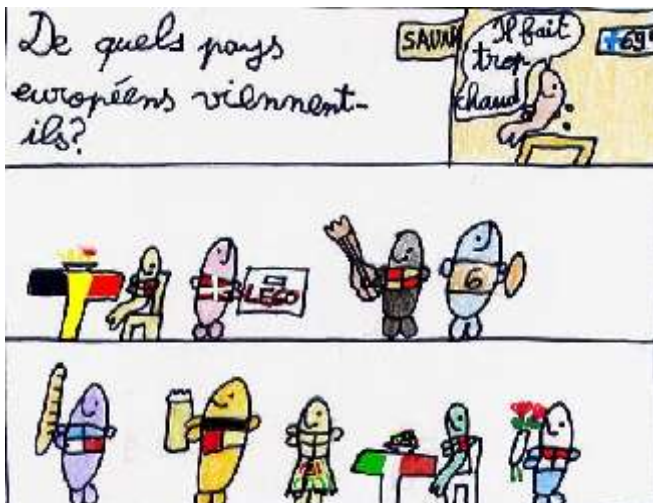 De quels pays
européens viennent-
ils?
SAUNA
Il fait
trop
chaud
+69°
LEGO
6